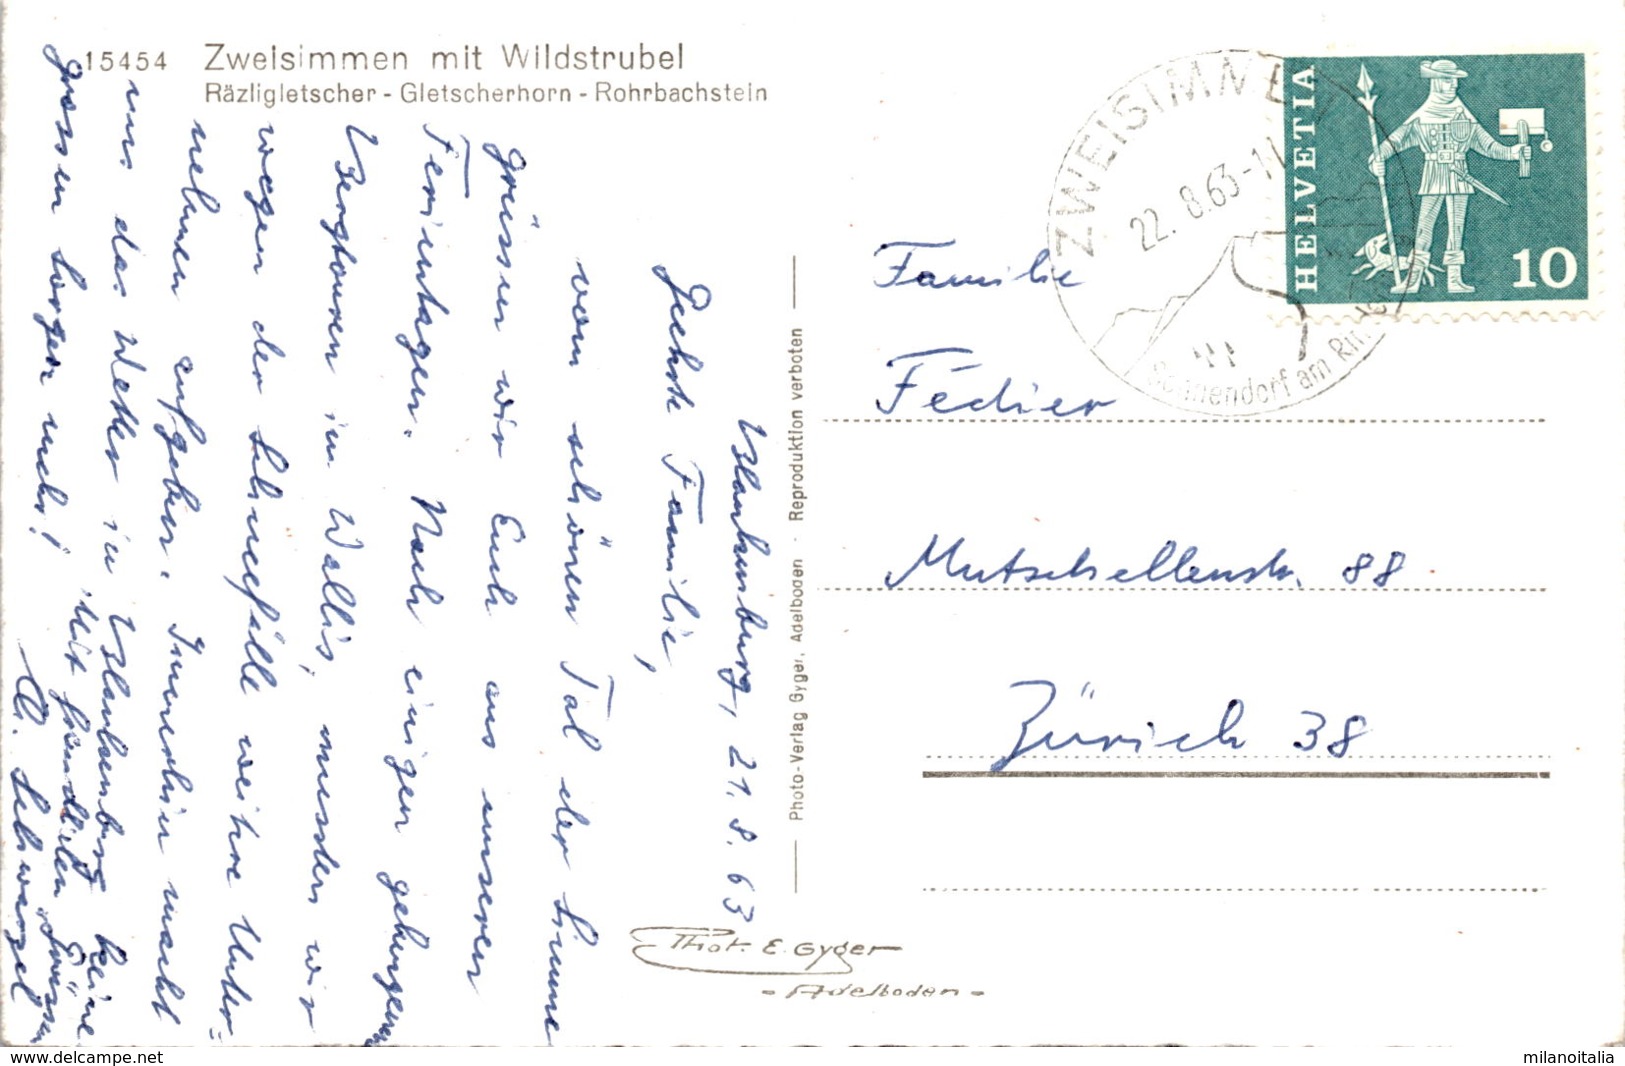 15454 Zweisimmen mit Wildstrubel
Räzligletscher - Gletscherhorn - Rohrbachstein
ZWEISIMMEN
22. 8.63
Sonnendorf am
HELVETIA
10
Familie
Fédier
Mutschellenstr. 88
Zürich 38
Photo-Verlag Gyger, Adelboden · Reproduktion verboten
Phot. E. Gyger
- Adelboden -
Blankenburg, 21. 8. 63
Geehrte Familie,
vom schönen Tal der Simme
grüssen wir Euch aus unseren
Ferientagen. Nach einigen gelungenen
Bergtouren im Wallis, mussten wir
wegen der Schneefälle weitere Unter-
nehmen aufgeben. Immerhin macht
uns das Wetter in Blankenburg keine
grossen Sorgen mehr! Mit freundlichen Grüssen
Schwarzel
delcampe.net
milanoitalia